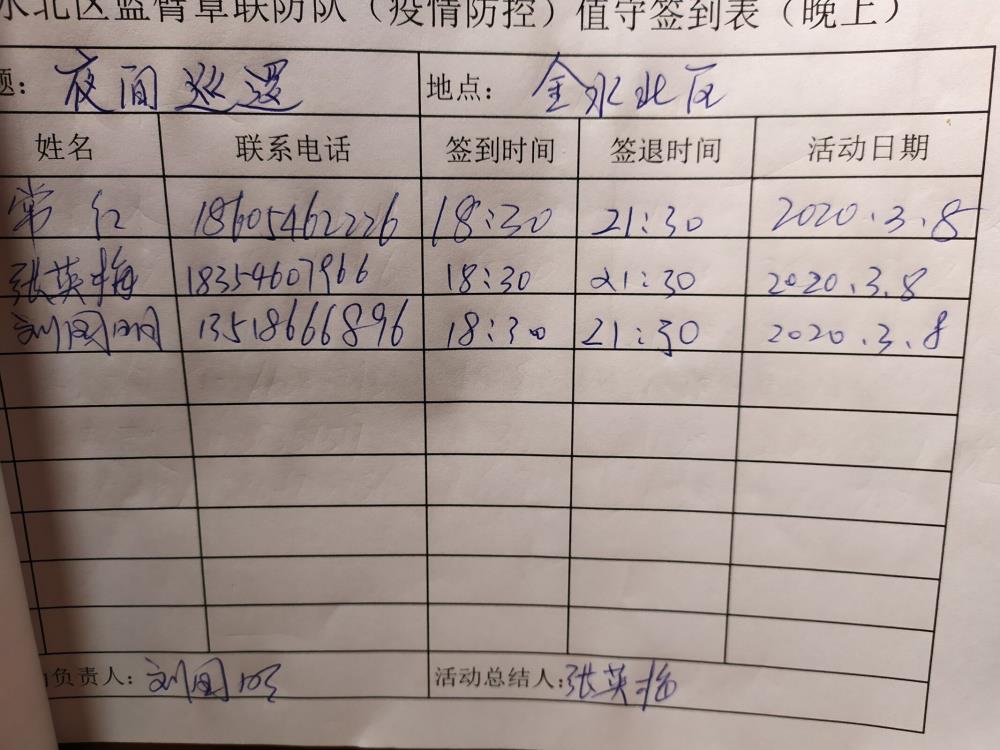 水北区蓝臂章联防队（疫情防控）值守签到表（晚上）
题：夜间巡逻 地点：金水北区
姓名 联系电话 签到时间 签退时间 活动日期
常红 18605462226 18:30 21:30 2020.3.8
张英梅 18354607966 18:30 21:30 2020.3.8
刘国明 13518666896 18:30 21:30 2020.3.8
负责人：刘国明 活动总结人：张英梅